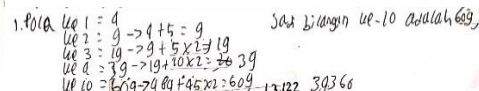 1. Pola ke 1 = 4
ke 2 = 9 -> 4 + 5 = 9
ke 3 = 19 -> 9 + 5 x 2 = 19
ke 4 = 39 -> 19 + 10 x 2 = 39
ke 10 = 609 ->
Jadi bilangan ke-10 adalah 609